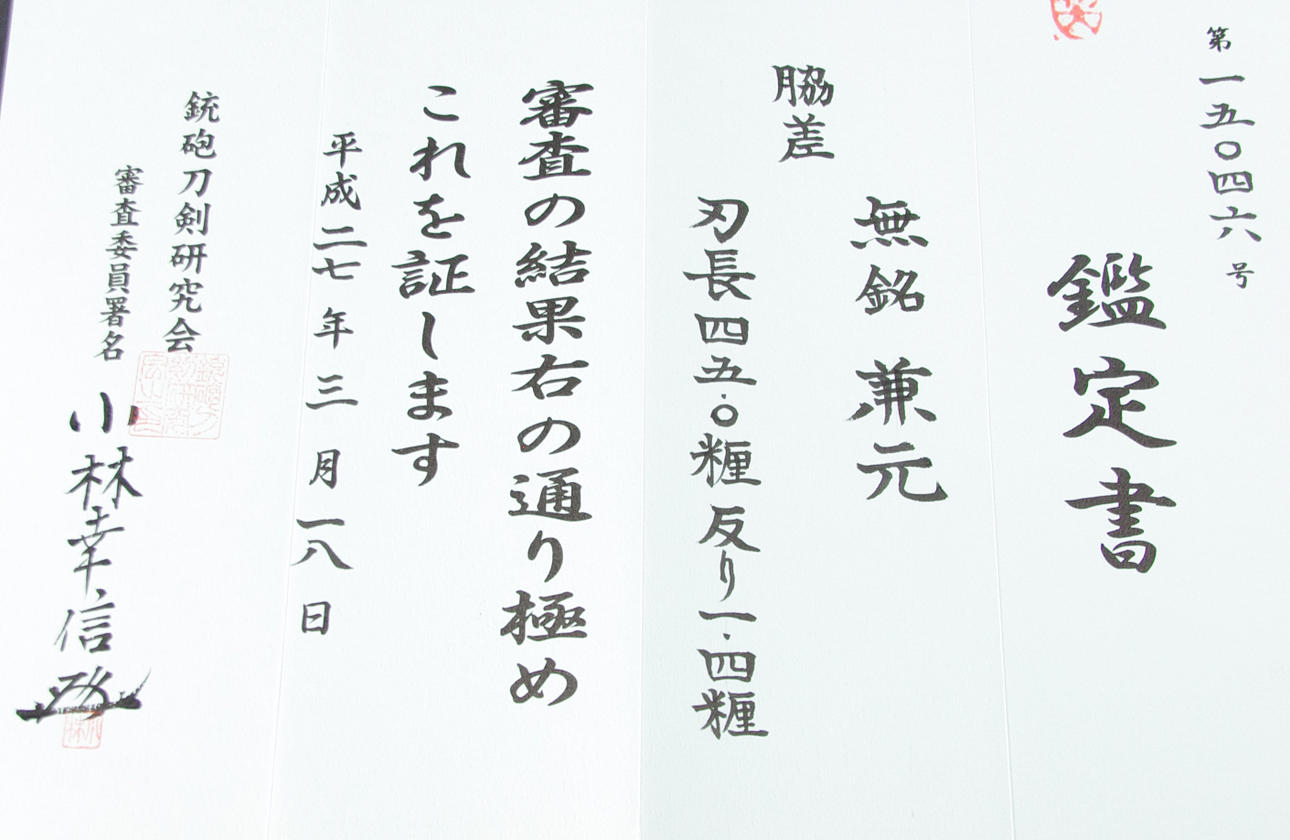 第一五〇四六号
鑑定書
無銘 兼元
脇差
刃長四五・〇糎 反り一・四糎
審査の結果右の通り極め
これを証します
平成二七年三月一八日
銃砲刀剣研究会
審査委員署名 小林幸信